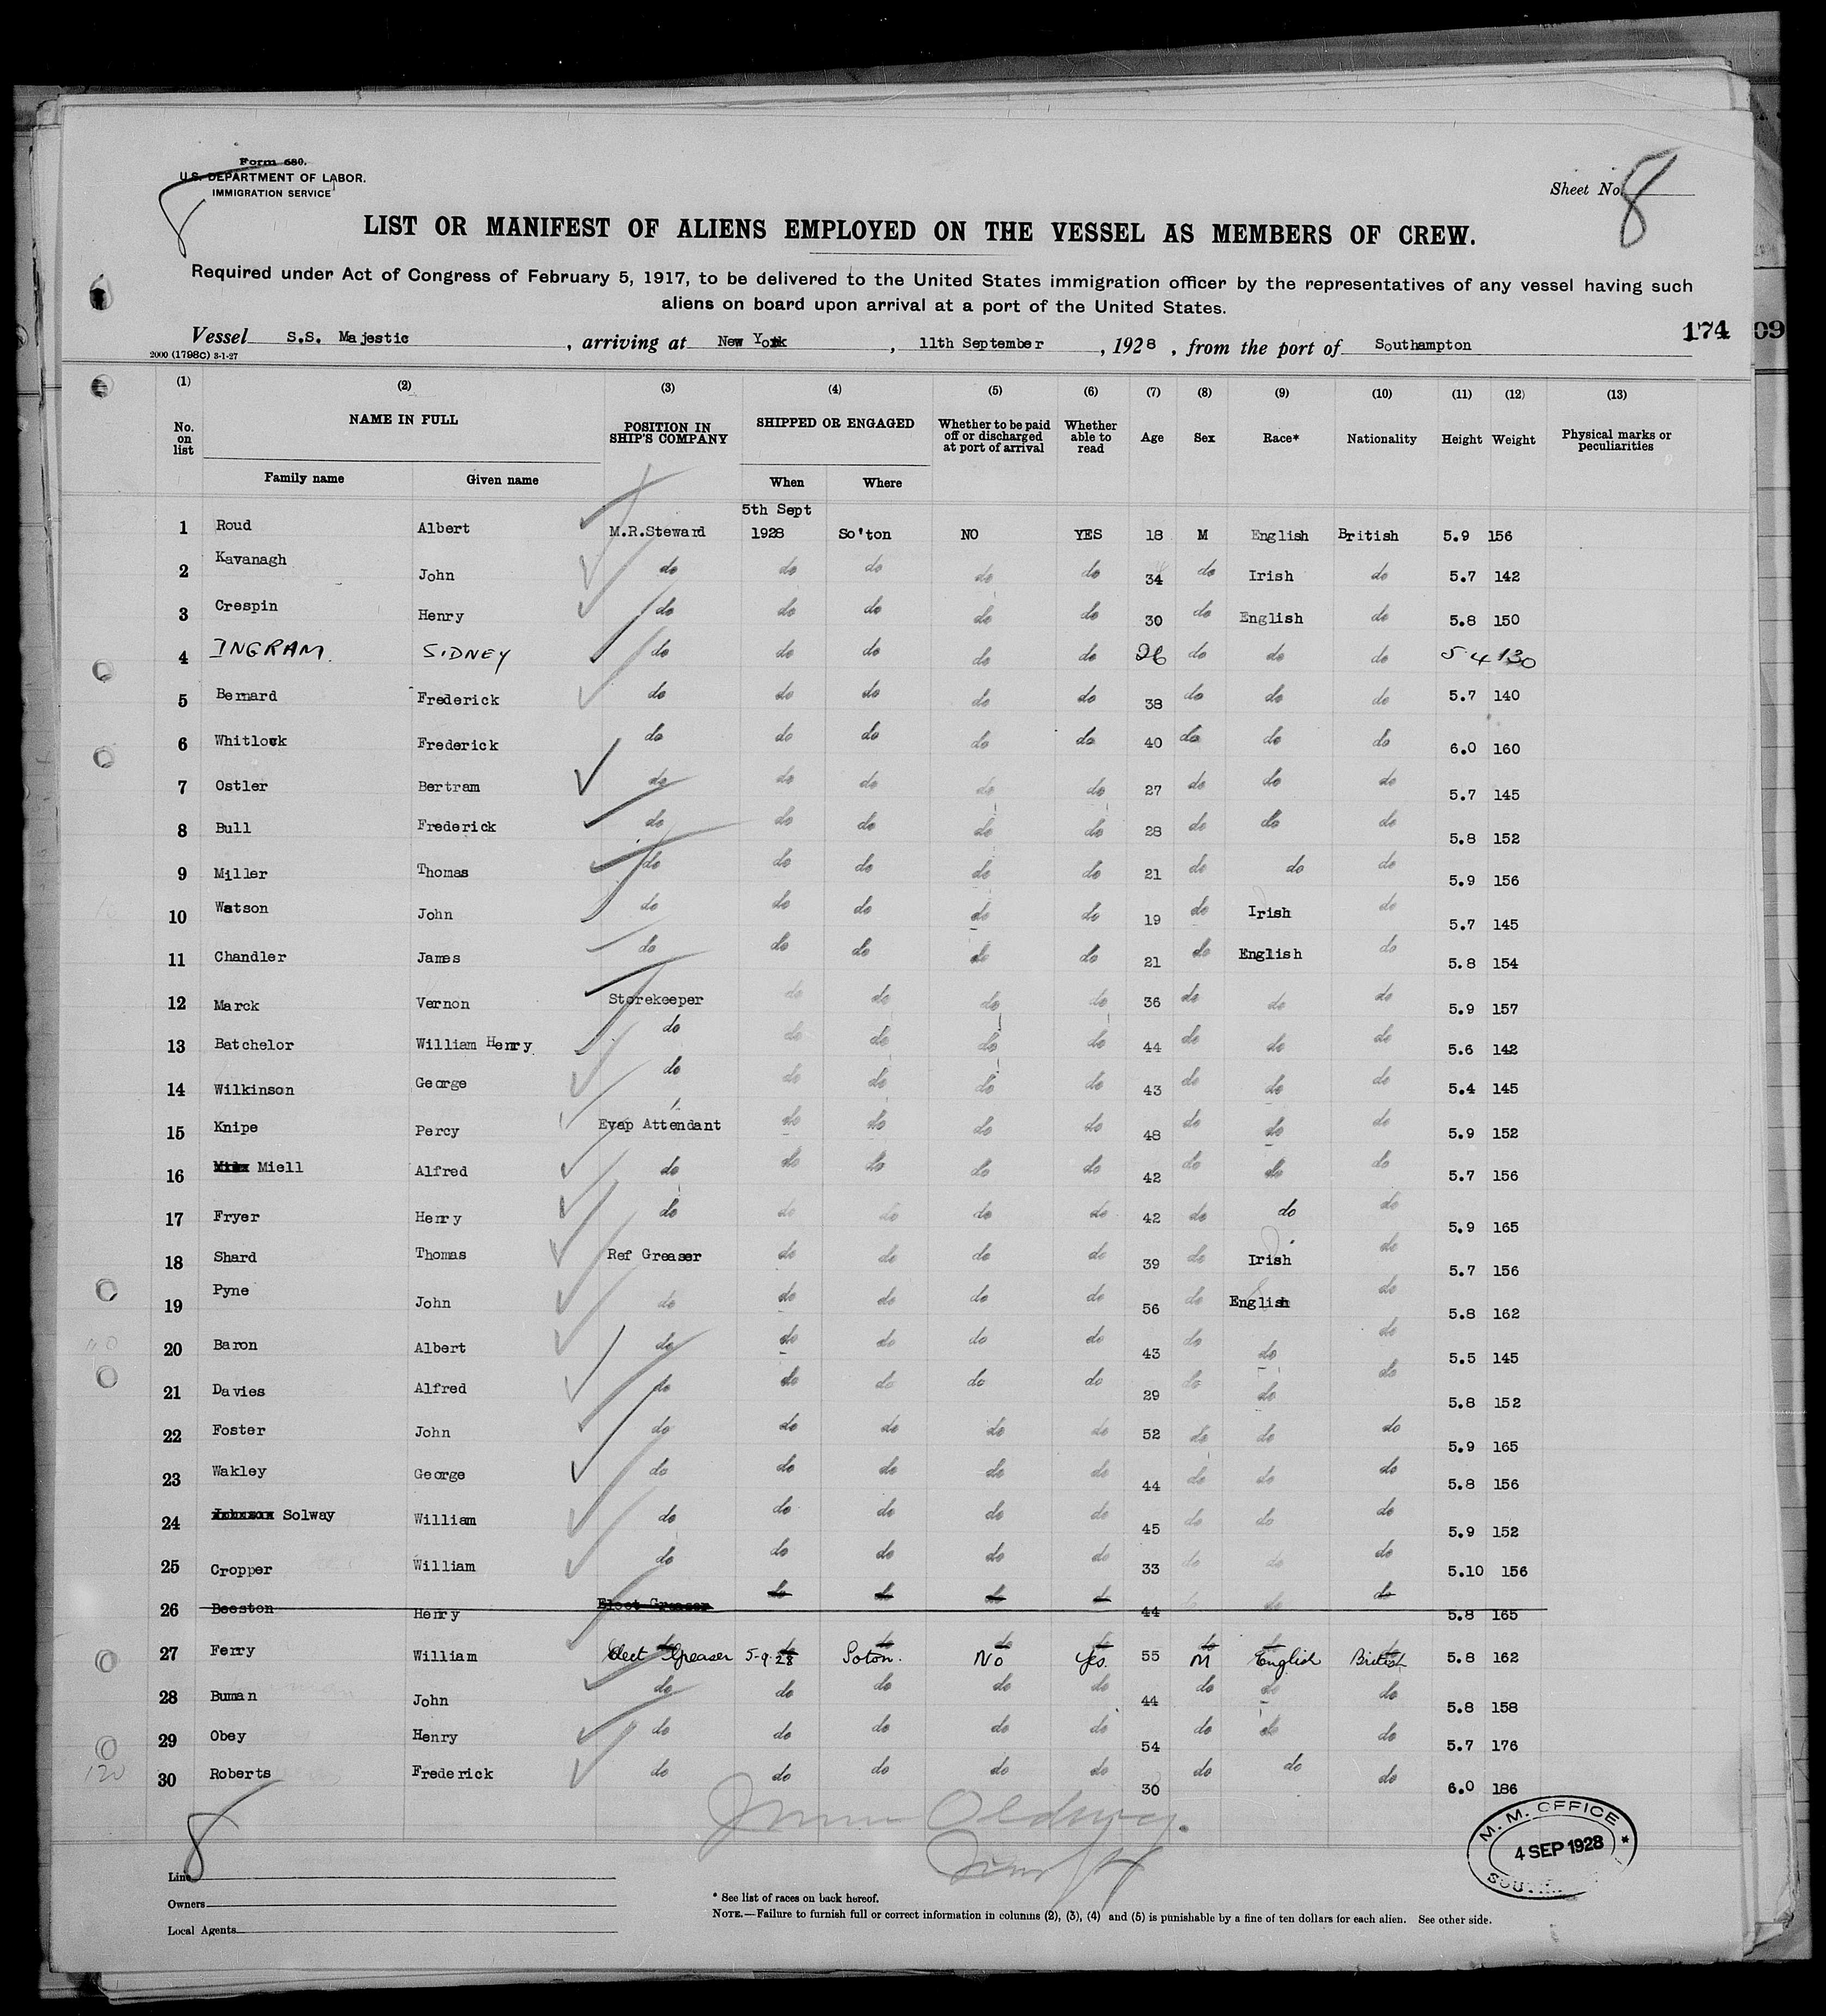 Form 680.
U.S. DEPARTMENT OF LABOR.
IMMIGRATION SERVICE
8
Sheet No. 8
LIST OR MANIFEST OF ALIENS EMPLOYED ON THE VESSEL AS MEMBERS OF CREW.
Required under Act of Congress of February 5, 1917, to be delivered to the United States immigration officer by the representatives of any vessel having such
aliens on board upon arrival at a port of the United States.
174 09
Vessel S.S. Majestic, arriving at New York, 11th September, 1928, from the port of Southampton
2000 (1798C) 3-1-27
(1) (2) (3) (4) (5) (6) (7) (8) (9) (10) (11) (12) (13)
No. on list NAME IN FULL POSITION IN SHIP'S COMPANY SHIPPED OR ENGAGED Whether to be paid off or discharged at port of arrival Whether able to read Age Sex Race* Nationality Height Weight Physical marks or peculiarities
Family name Given name When Where
5th Sept
1 Roud Albert M.R.Steward 1928 So'ton NO YES 18 M English British 5.9 156
2 Kavanagh John do do do do do 34 do Irish do 5.7 142
3 Crespin Henry do do do do do 30 do English do 5.8 150
4 INGRAM. SIDNEY do do do do do 26 do do do 5.4 130
5 Bernard Frederick do do do do do 38 do do do 5.7 140
6 Whitlock Frederick do do do do do 40 do do do 6.0 160
7 Ostler Bertram do do do do do 27 do do do 5.7 145
8 Bull Frederick do do do do do 28 do do do 5.8 152
9 Miller Thomas do do do do do 21 do do do 5.9 156
10 Watson John do do do do do 19 do Irish do 5.7 145
11 Chandler James do do do do do 21 do English do 5.8 154
12 Marck Vernon Storekeeper do do do do 36 do do do 5.9 157
13 Batchelor William Henry do do do do do 44 do do do 5.6 142
14 Wilkinson George do do do do do 43 do do do 5.4 145
15 Knipe Percy Evap Attendant do do do do 48 do do do 5.9 152
16 Miell Alfred do do do do do 42 do do do 5.7 156
17 Fryer Henry do do do do do 42 do do do 5.9 165
18 Shard Thomas Ref Greaser do do do do 39 do Irish do 5.7 156
19 Pyne John do do do do do 56 do English do 5.8 162
20 Baron Albert do do do do do 43 do do do 5.5 145
21 Davies Alfred do do do do do 29 do do do 5.8 152
22 Foster John do do do do do 52 do do do 5.9 165
23 Wakley George do do do do do 44 do do do 5.8 156
24 Solway William do do do do do 45 do do do 5.9 152
25 Cropper William do do do do do 33 do do do 5.10 156
26 Beeston Henry Elect Greaser do do do do 44 do do do 5.8 165
27 Ferry William Elect Greaser 5-9-28 Soton. No Yes. 55 M English British 5.8 162
28 Buman John do do do do do 44 do do do 5.8 158
29 Obey Henry do do do do do 54 do do do 5.7 176
30 Roberts Frederick do do do do do 30 do do do 6.0 186
120
8
M. M. OFFICE
4 SEP 1928
Line
Owners
Local Agents
* See list of races on back hereof.
NOTE.—Failure to furnish full or correct information in columns (2), (3), (4) and (5) is punishable by a fine of ten dollars for each alien. See other side.